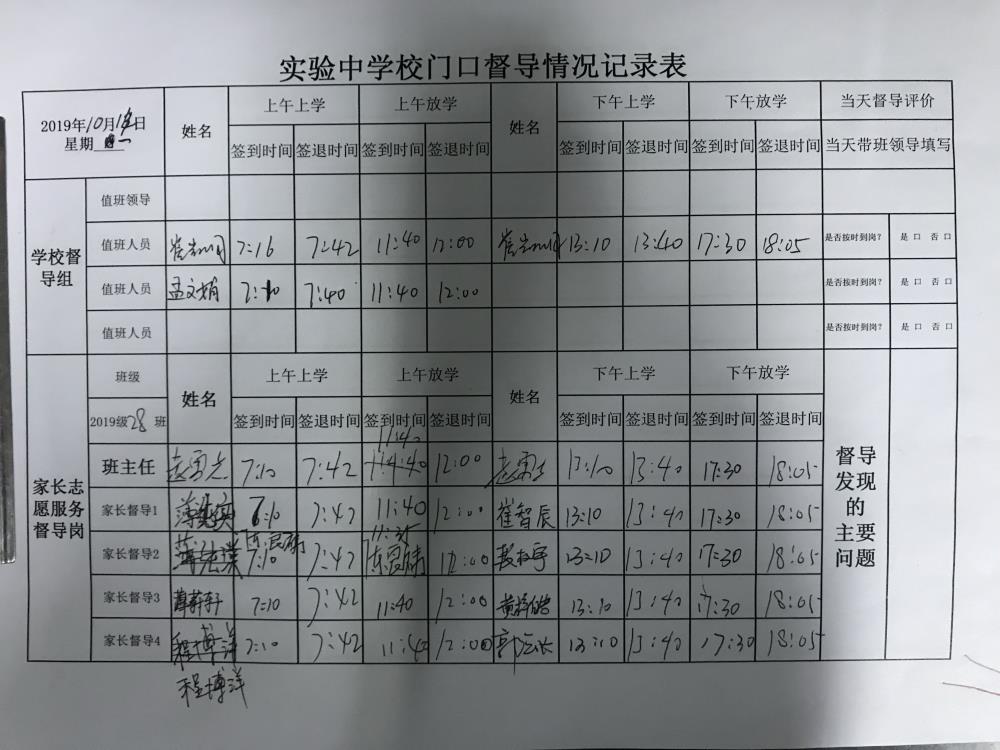 实验中学校门口督导情况记录表
2019年10月14日 姓名 上午上学 上午放学 姓名 下午上学 下午放学 当天督导评价
星期一 签到时间 签退时间 签到时间 签退时间 签到时间 签退时间 签到时间 签退时间 当天带班领导填写
学校督导组
值班领导
值班人员 7:16 7:42 11:40 12:00 13:10 13:40 17:30 18:05 是否按时到岗? 是 口 否 口
值班人员 孟文娟 7:10 7:40 11:40 12:00 是否按时到岗? 是 口 否 口
值班人员 是否按时到岗? 是 口 否 口
家长志愿服务督导岗
班级 姓名 上午上学 上午放学 姓名 下午上学 下午放学 督导发现的主要问题
2019级28班 签到时间 签退时间 签到时间 签退时间 签到时间 签退时间 签到时间 签退时间
班主任 7:10 7:42 11:40 12:00 13:10 13:40 17:30 18:05
家长督导1 7:42 11:40 12:00 崔智辰 13:10 13:40 17:30 18:05
11:35
家长督导2 7:10 7:42 12:00 13:10 13:40 17:30 18:05
家长督导3 7:10 7:42 11:40 12:00 13:10 13:40 17:30 18:05
家长督导4 程博洋 7:10 7:42 11:40 12:00 13:10 13:40 17:30 18:05
程博洋